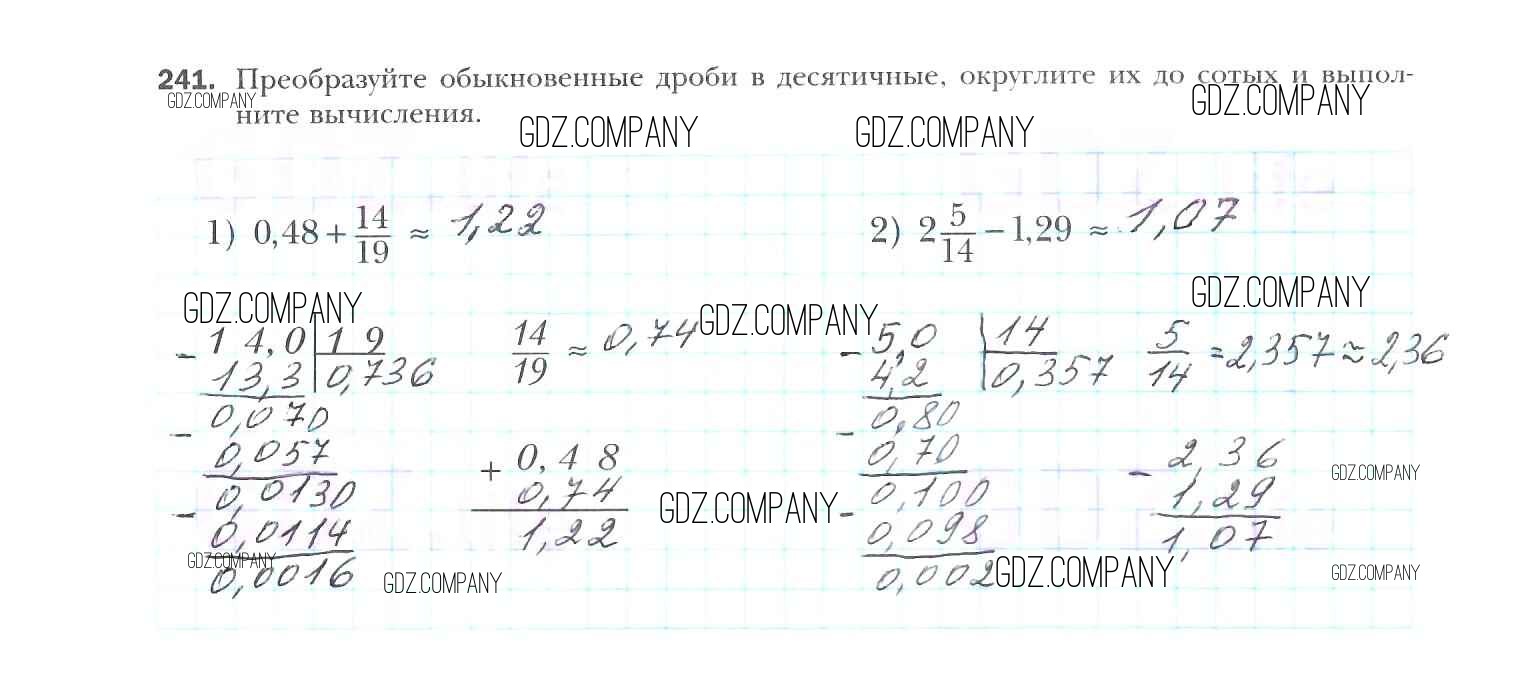 241. Преобразуйте обыкновенные дроби в десятичные, округлите их до сотых и выпол-
GDZ.COMPANY GDZ.COMPANY
ните вычисления.
GDZ.COMPANY GDZ.COMPANY
1) 0,48 + 14/19 ≈ 1,22
2) 2 5/14 − 1,29 ≈ 1,07
GDZ.COMPANY GDZ.COMPANY GDZ.COMPANY
− 14,0 | 19
13,3 | 0,736
0,070
− 0,057
0,0130
− 0,0114
0,0016
14/19 ≈ 0,74
+ 0,48
0,74
1,22
− 5,0 | 14
4,2 | 0,357
0,80
− 0,70
0,100
− 0,098
0,002
5/14 = 2,357 ≈ 2,36
− 2,36
1,29
1,07
GDZ.COMPANY GDZ.COMPANY
GDZ.COMPANY GDZ.COMPANY GDZ.COMPANY GDZ.COMPANY